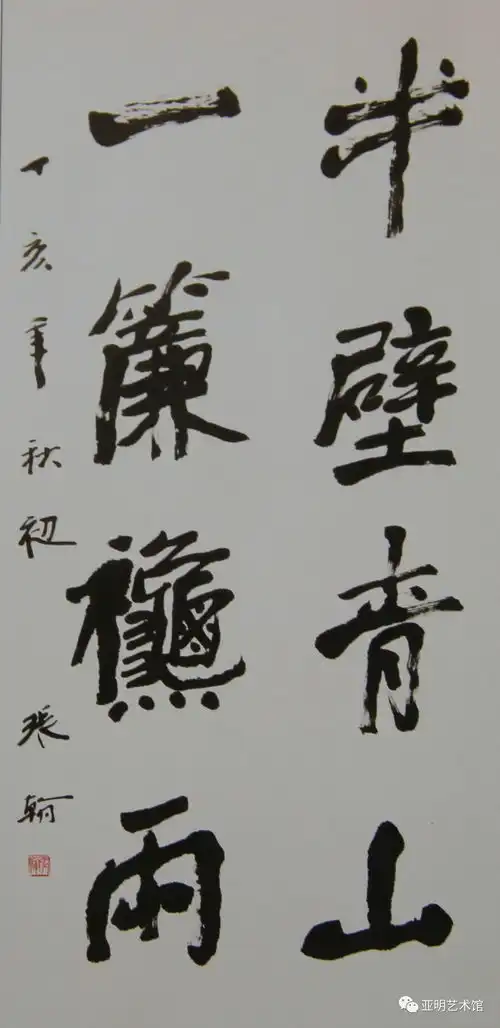 半壁青山
一簾𥤛雨
丁亥年秋初 張翰
亚明艺术馆